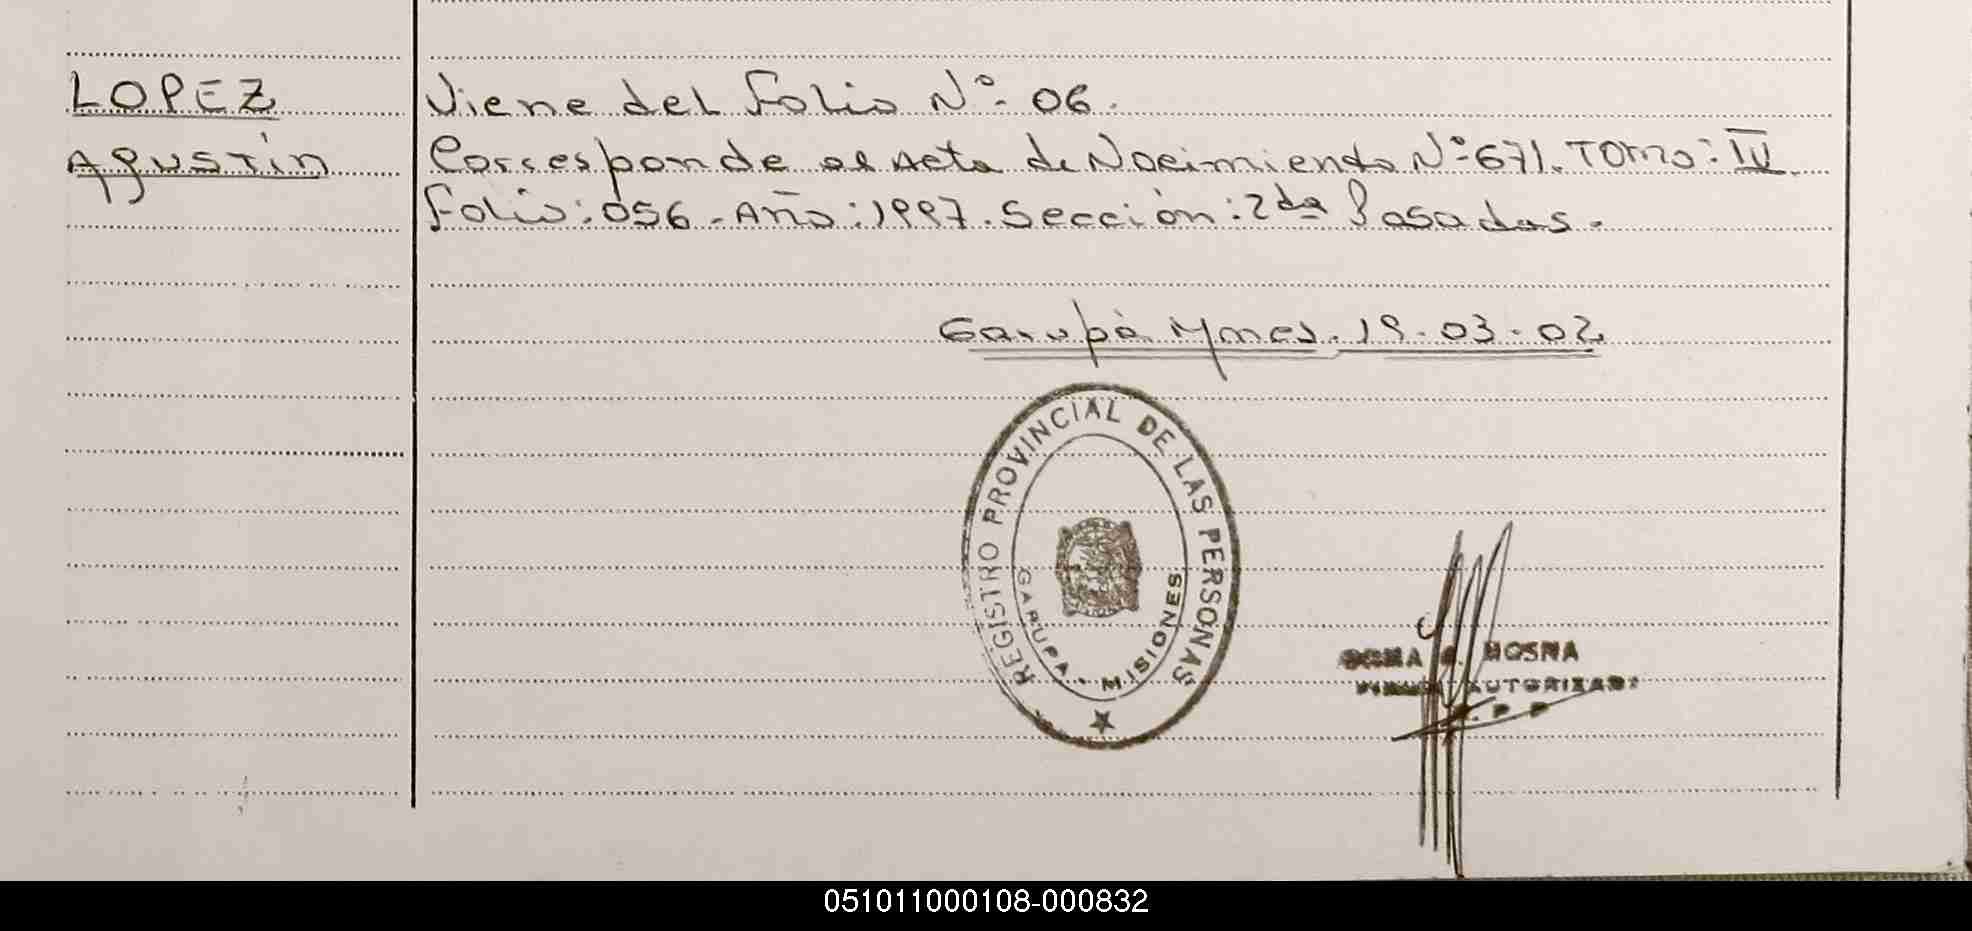 LOPEZ
Viene del Folio Nº 06.
AGUSTín
Corresponde al Acta de Nacimiento Nº 671. Tomo: IV
Folio: 056. Año: 1997. Sección: 2da Posadas.
Garupá Mnes. 19-03-02
REGISTRO PROVINCIAL DE LAS PERSONAS
GARUPA - MISIONES
MOSNA
AUTORIZAD
051011000108-000832